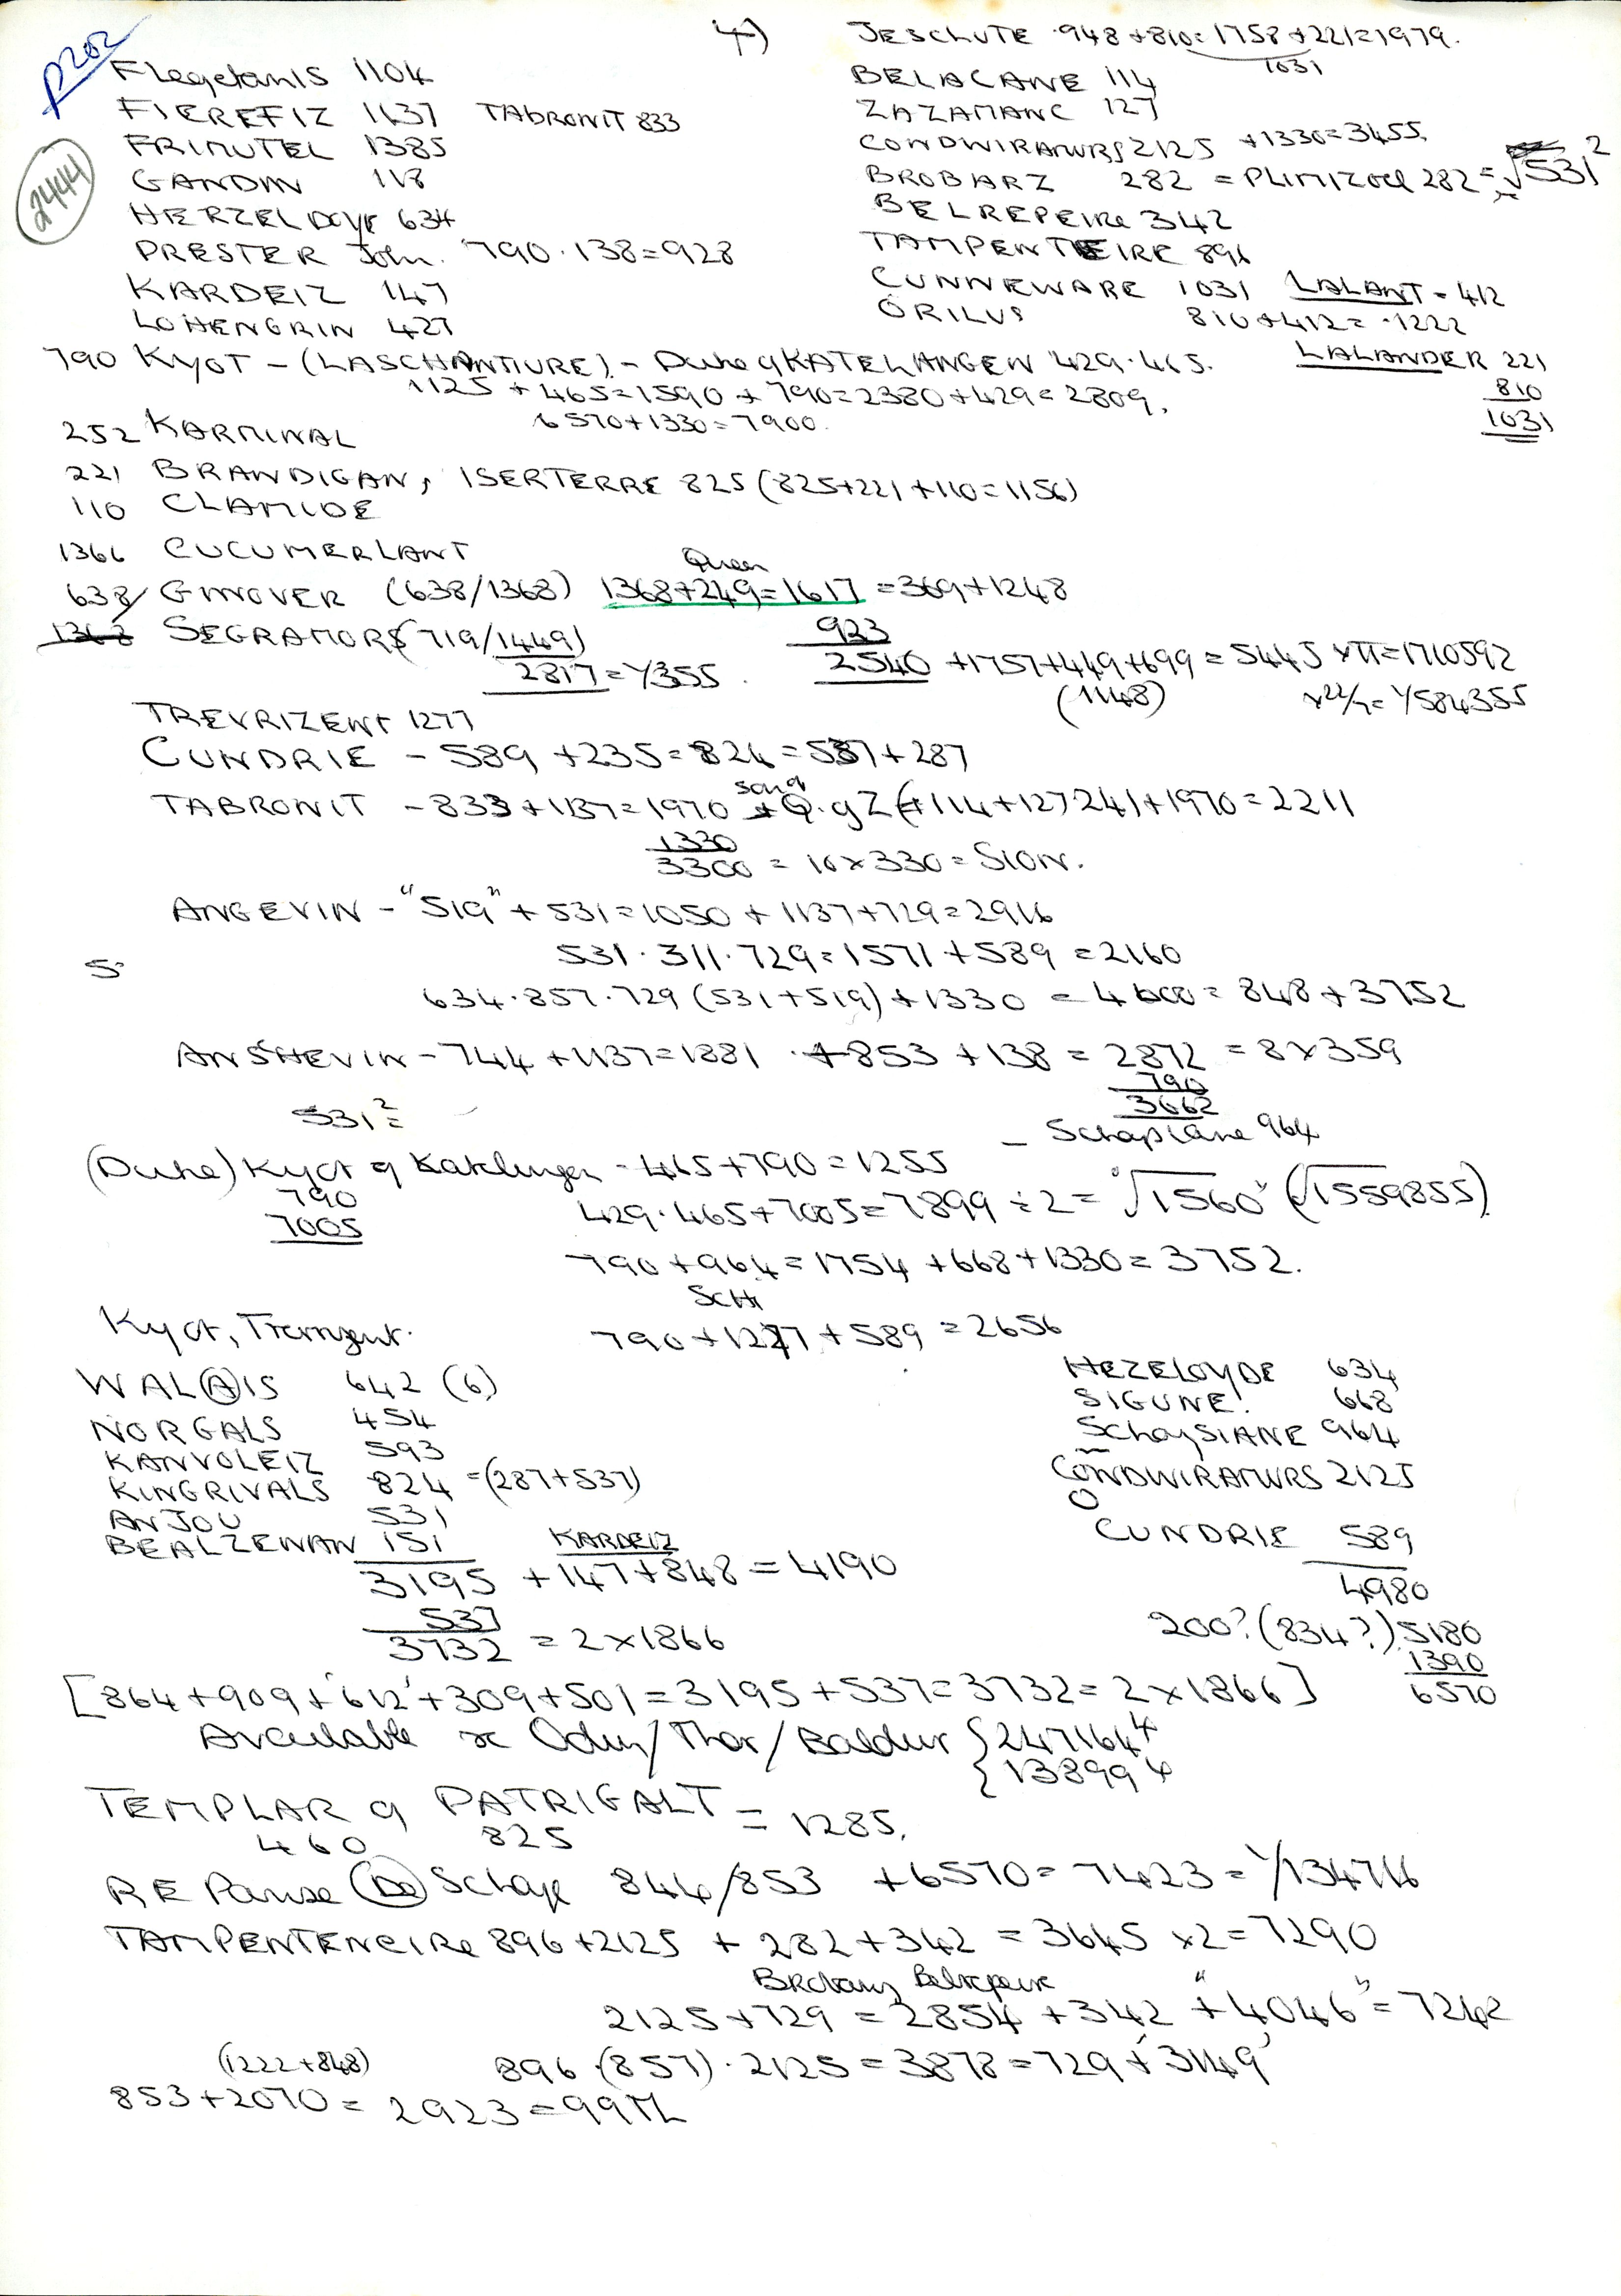 P202
2444
4)
Flegetanis 1104
FIEREFIZ 1137 TABRONIT 833
FRIMUTEL 1385
GANDIN 118
HERZELOYE 634
PRESTER John. 790.138=928
KARDEIZ 147
LOHENGRIN 427
JESCHUTE 948+810=1758+221=1979.
1031
BELACANE 114
ZAZAMANC 127
CONDWIRAMURS 2125 +1330=3455.
BROBARZ 282 = PLIMIZOEL 282 = √531²
BELREPEIRE 342
TAMPENTEIRE 896
CUNNEWARE 1031 LALANT - 412
ORILUS 810+412= 1222
LALANDER 221
810
1031
790 KYOT - (LASCHANTIURE) - Duke of KATELANGEN 429.465.
1125 + 465=1590 + 790=2380+429=2809.
6570+1330=7900.
252 KARMINAL
221 BRANDIGAN, ISERTERRE 825 (825+221+110=1156)
110 CLAMIDE
1366 CUCUMERLANT
638 GINOVER (638/1368) Queen 1368+249=1617 =369+1248
1368 SEGRAMORS (719/1449) 923
2817=1/355. 2540 +1757+449+699=5445 xπ=1710592
(1148) x22/7=1/584355
TREVRIZENT 1277
CUNDRIE - 589 +235=824=537+287
TABRONIT - 833+1137=1970 + Q. of Z (+114+127 241+1970=2211
1330
3300 = 10x330= SION.
ANGEVIN - "519" + 531=1050 + 1137+729=2916
531.311.729=1571+589=2160
5
634.857.729 (531+519)+1330 = 4600= 848+3752
ANSHEVIN - 744+1137=1881 +853+138=2872=8x359
790
3662
531²=
- Schoysiane 964
(Duke) Kyot of Katelangen - 465+790=1255
790
7005
429.465+7005=7899÷2=√1560 (√1559855)
790+964=1754+668+1330=3752.
SCH
Kyot, Trevrizent. 790+1277+589=2656
WALAIS 642 (6)
NORGALS 454
KANVOLEIZ 593
KINGRIVALS 824 =(287+537)
ANJOU 531
BEALZENAN 151 KARDEIZ
3195 +147+848=4190
537
3732 = 2x1866
HEZELOYDE 634
SIGUNE! 668
SchoySIANE 964
CONDWIRAMURS 2125
O
CUNDRIE 589
4980
200?(834?) 5180
1390
6570
[864+909+'612'+309+501=3195+537=3732=2x1866]
Available x Odin/Thor/Baldur {247164⁴
{13899⁴
TEMPLAR of PATRIGALT = 1285.
460 825
RE Panse (De) Schoye 844/853 +6570=7423=1/134716
TAMPENTENEIRE 896+2125 + 282+342=3645 x2=7290
Brobarz Belrepeire
2125+729=2854+342 +"4046"=7242
(1222+848) 896.(857).2125=3878=729+'3149'
853+2070= 2923=99TL